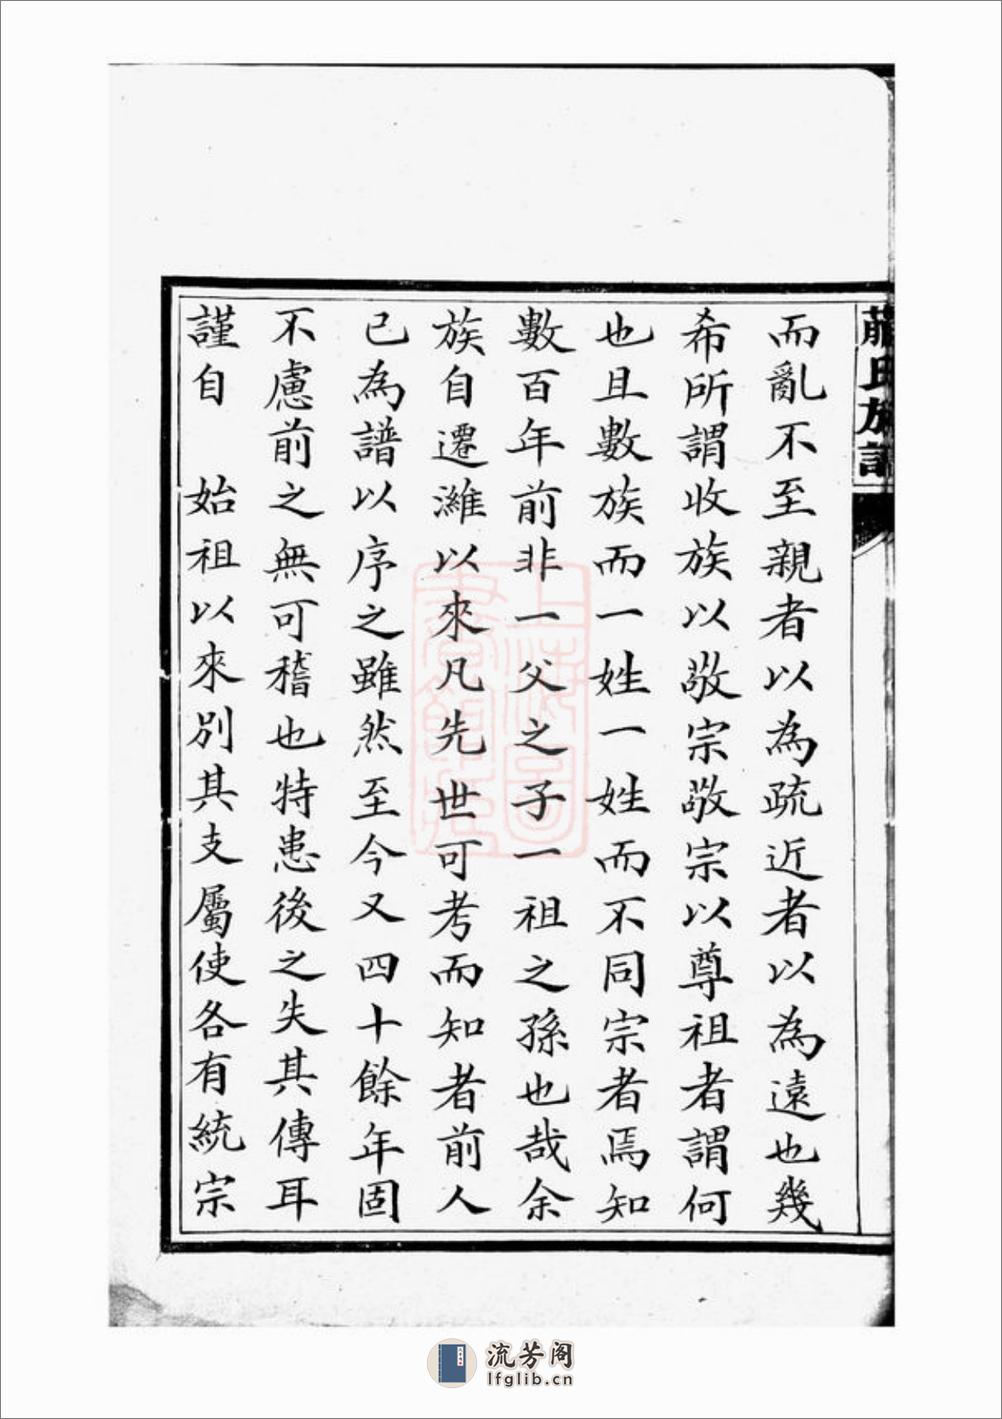 而亂不至親者以為疏近者以為遠也幾
希所謂收族以敬宗敬宗以尊祖者謂何
也且數族而一姓一姓而不同宗者焉知
數百年前非一父之子一祖之孫也哉余
族自遷濰以來凡先世可考而知者前人
已為譜以序之雖然至今又四十餘年固
不慮前之無可稽也特患後之失其傳耳
謹自　始祖以來別其支屬使各有統宗
氏族譜
上海圖書館藏
流芳阁
lfglib.cn